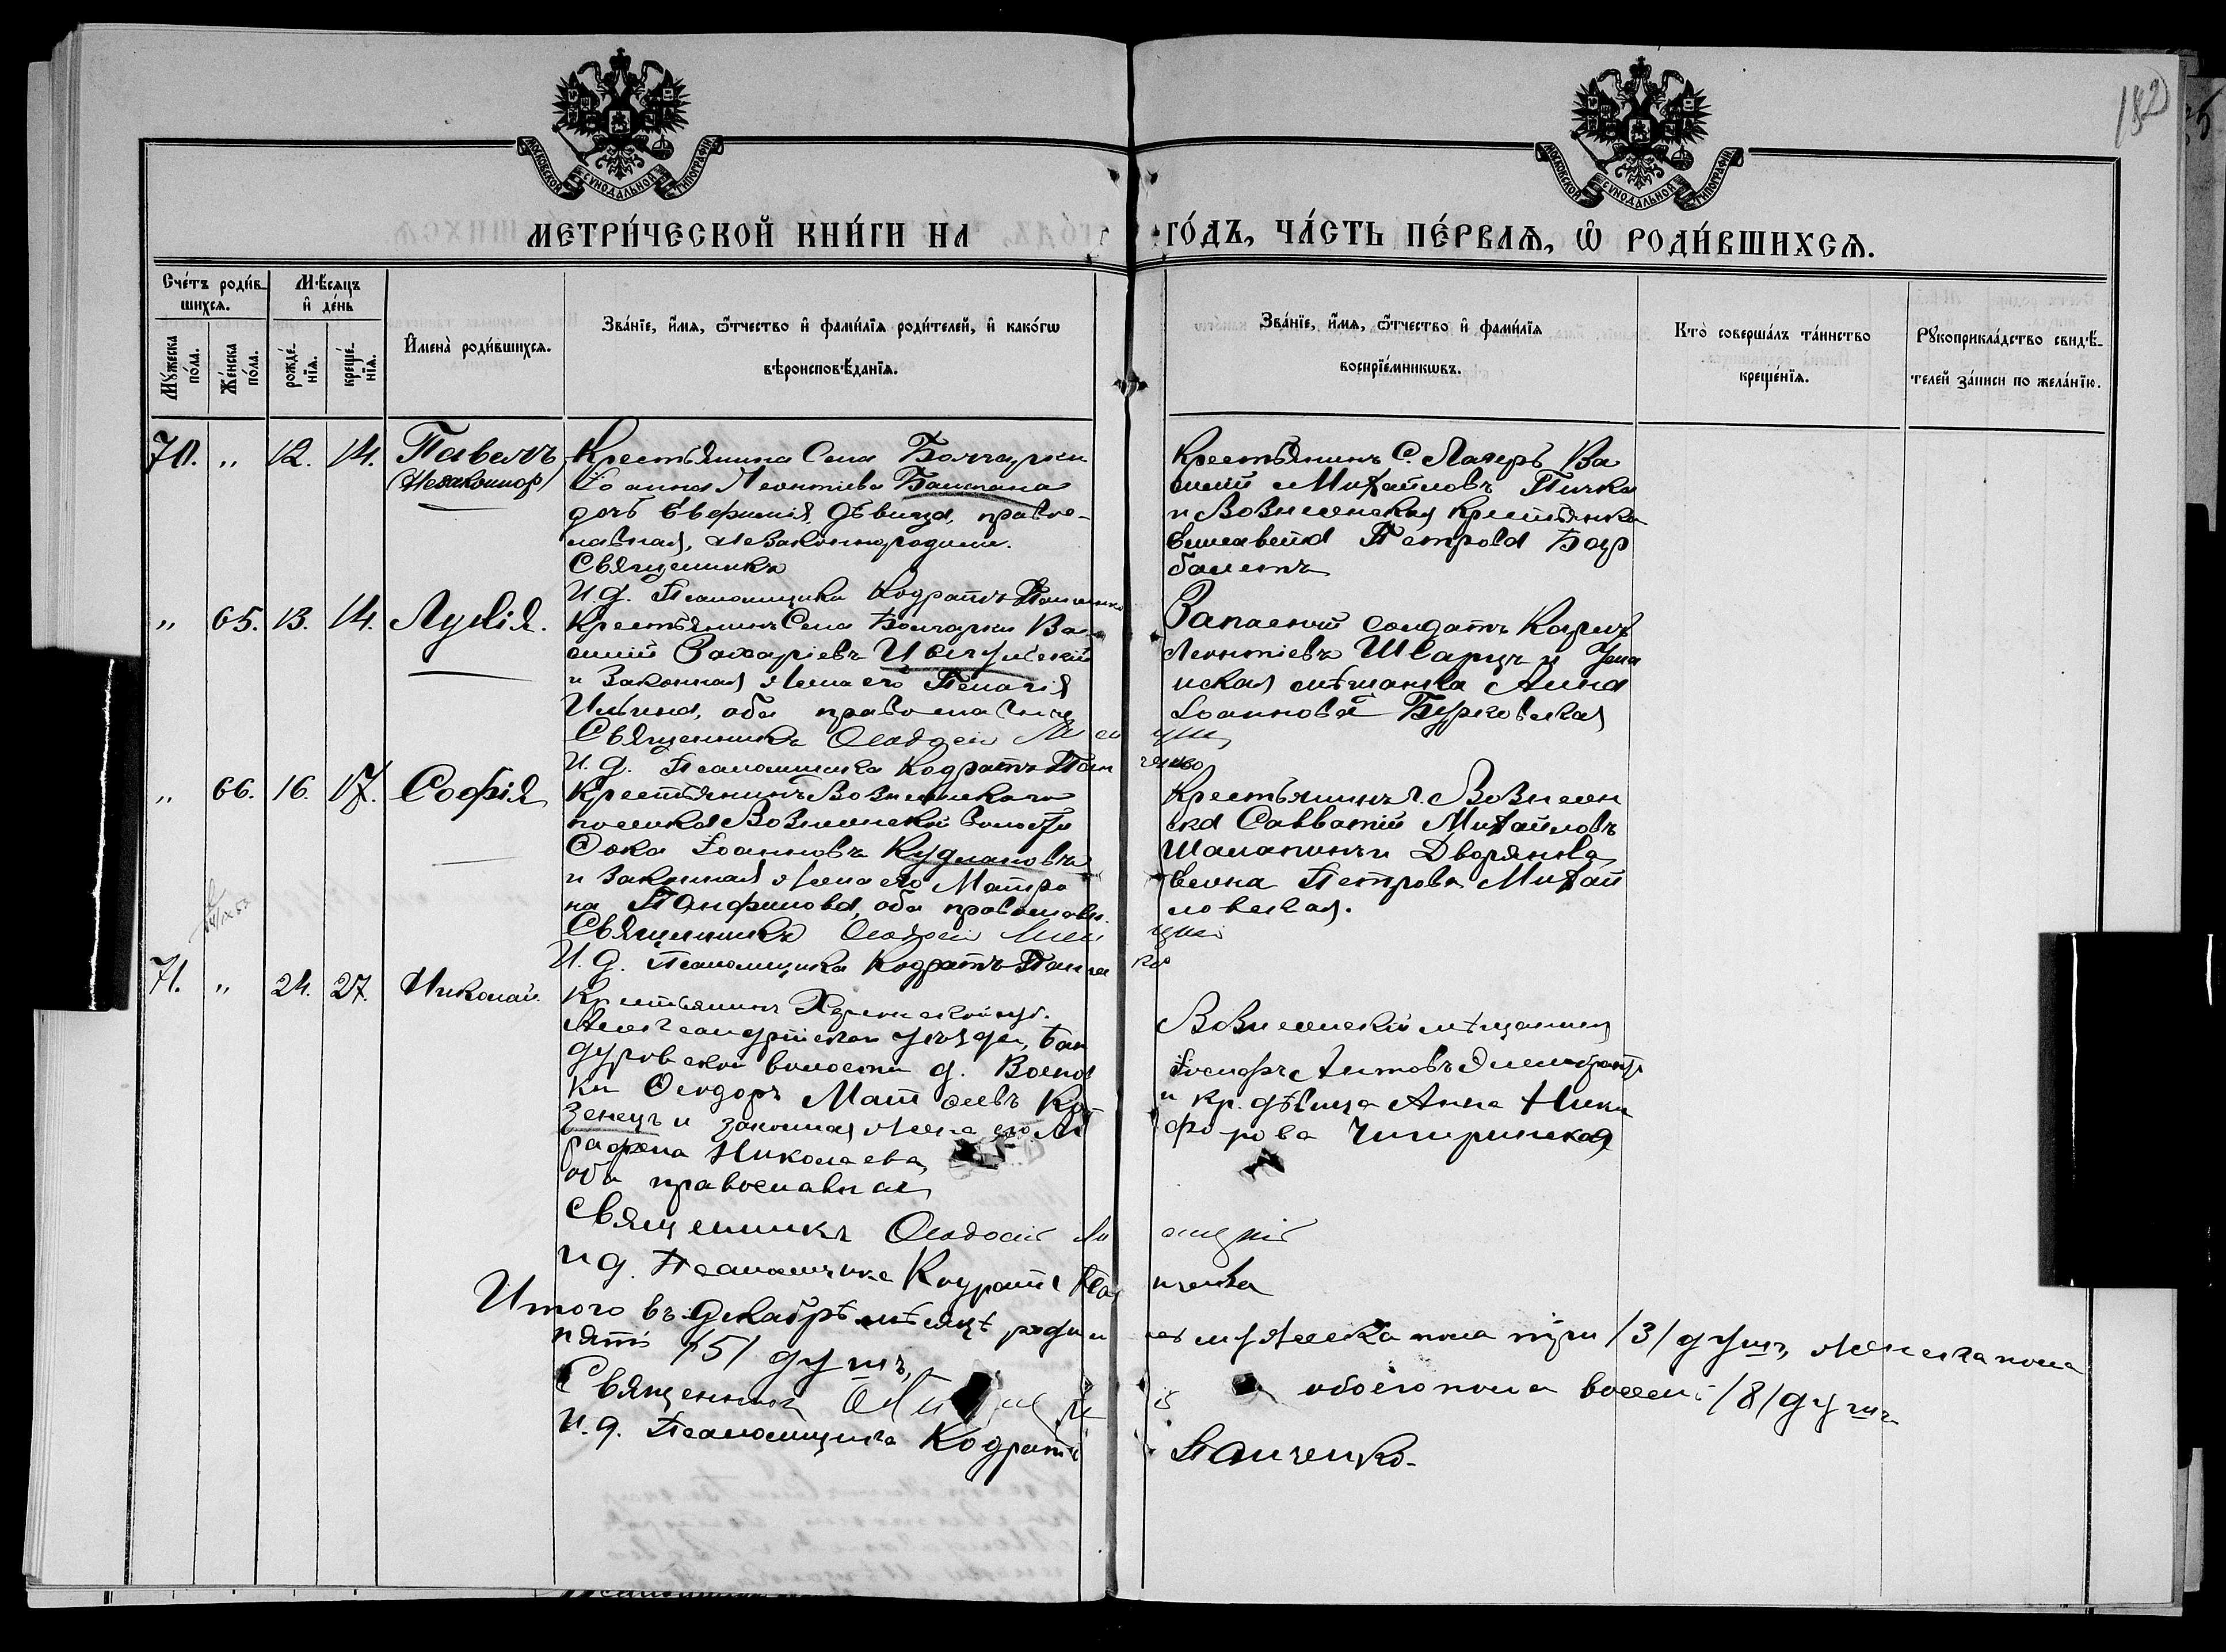 182
МОСКОВСКОЙ СѴНОДАЛЬНОЙ ТИПОГРАФІИ
МОСКОВСКОЙ СѴНОДАЛЬНОЙ ТИПОГРАФІИ
МЕТРИ́ЧЕСКОЙ КНИ́ГИ НА
ГО́ДЪ, ЧА́СТЬ ПЕ́РВАѦ, Ѡ РОДИ́ВШИХСѦ.
Сче́тъ роди́в-
шихсѧ.
Мѣ́сѧцъ
и҆ де́нь
Мꙋ́жеска
по́ла.
Же́нска
по́ла.
рожде́-
нїѧ.
креще́-
нїѧ.
И҆мена̀ роди́вшихсѧ.
Зва́нїе, и҆́мѧ, ѻ҆́тчество и҆ фами́лїѧ роди́телей, и҆ како́гѡ
вѣроисповѣ́данїѧ.
Зва́нїе, и҆́мѧ, ѻ҆́тчество и҆ фами́лїѧ
воспрїе́мникѡвъ.
Кто̀ соверша́лъ та́инство
креще́нїѧ.
Рꙋкоприкла́дство свидѣ́-
телей за́писи по жела́нїю.
70. " 12. 14. Павелъ
(Незаконнор)
Крестьянина Села Болгарки
Іоанна Леонтіева Баштана
дочь Евфимія, дѣвица, право-
лавная, Незаконнородил.
Священникъ
И. д. Псаломщика Кодратъ Панченко
Крестьянинъ С. Лагерь Ва
силій Михайловъ Пичка
и Вознесенская Крестьянка
Елисавета Петрова Бар
балетъ
" 65. 13. 14. Лукія.
Крестьянинъ Села Болгарки Ва-
силій Захаріевъ
и Законная жена его Пелагія
Ильина, оба православные
Священникъ Ѳеодосій
И. д. Псаломщика Кодратъ Пан
ченко
Запасный солдатъ Карпъ
Леонтіевъ Шварцъ и Ума
нская мѣщанка Анна
Іоаннова Бурковская
" 66. 16. 17. Софія
Крестьянинъ Вознесенскаго
поселка Вознесенской волости
Ѳока Іоанновъ Кудлановъ
и Законная жена его Матро
на Панфилова, оба православн.
Священникъ Ѳеодосій
И. д. Псаломщика Кодратъ Панчен
ко
Крестьянинъ г. Вознесен
ска Савватій Михайловъ
Шалапинъ и Дворянка
Елена Петрова Михай
ловская.
71. " 24. 27. Николай.
Крестьянинъ Херсонской губ.
Александрійскаго уѣзда, Бан
дуровской волости д. Воено
ки Ѳеодоръ Матѳеевъ Ко
зенецъ и законная жена его Аг
рафена Николаева,
оба православная
Священникъ Ѳеодосій
и д. Псаломщика Кодратъ Пан
ченко
Вознесенскій мѣщанинъ
Іосифъ Антовъ
и кр. дѣвица Анна Ники
форова Чигиринская
Итого въ Декабрѣ мѣсяцѣ родил
ось мужеска пола три /3/ душъ, женска пола
пять /5/ душъ,
обоего пола восемь /8/ душъ
Священникъ
И. д. Псаломщика Кодратъ
Панченко.